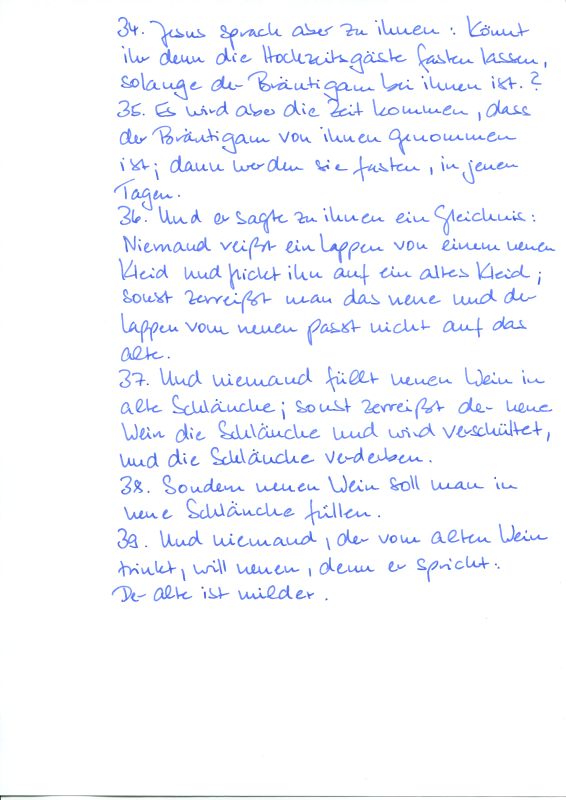 34. Jesus sprach aber zu ihnen: Könnt
ihr denn die Hochzeitsgäste fasten lassen,
solange der Bräutigam bei ihnen ist.?
35. Es wird aber die Zeit kommen, dass
der Bräutigam von ihnen genommen
ist; dann werden sie fasten, in jenen
Tagen.
36. Und er sagte zu ihnen ein Gleichnis:
Niemand reißt ein Lappen von einem neuen
Kleid und flickt ihn auf ein altes Kleid;
sonst zerreißt man das neue und der
Lappen vom neuen passt nicht auf das
alte.
37. Und niemand füllt neuen Wein in
alte Schläuche; sonst zerreißt der neue
Wein die Schläuche und wird verschüttet,
und die Schläuche verderben.
38. Sondern neuen Wein soll man in
neue Schläuche füllen.
39. Und niemand, der vom alten Wein
trinkt, will neuen, denn er spricht:
Der alte ist milder.